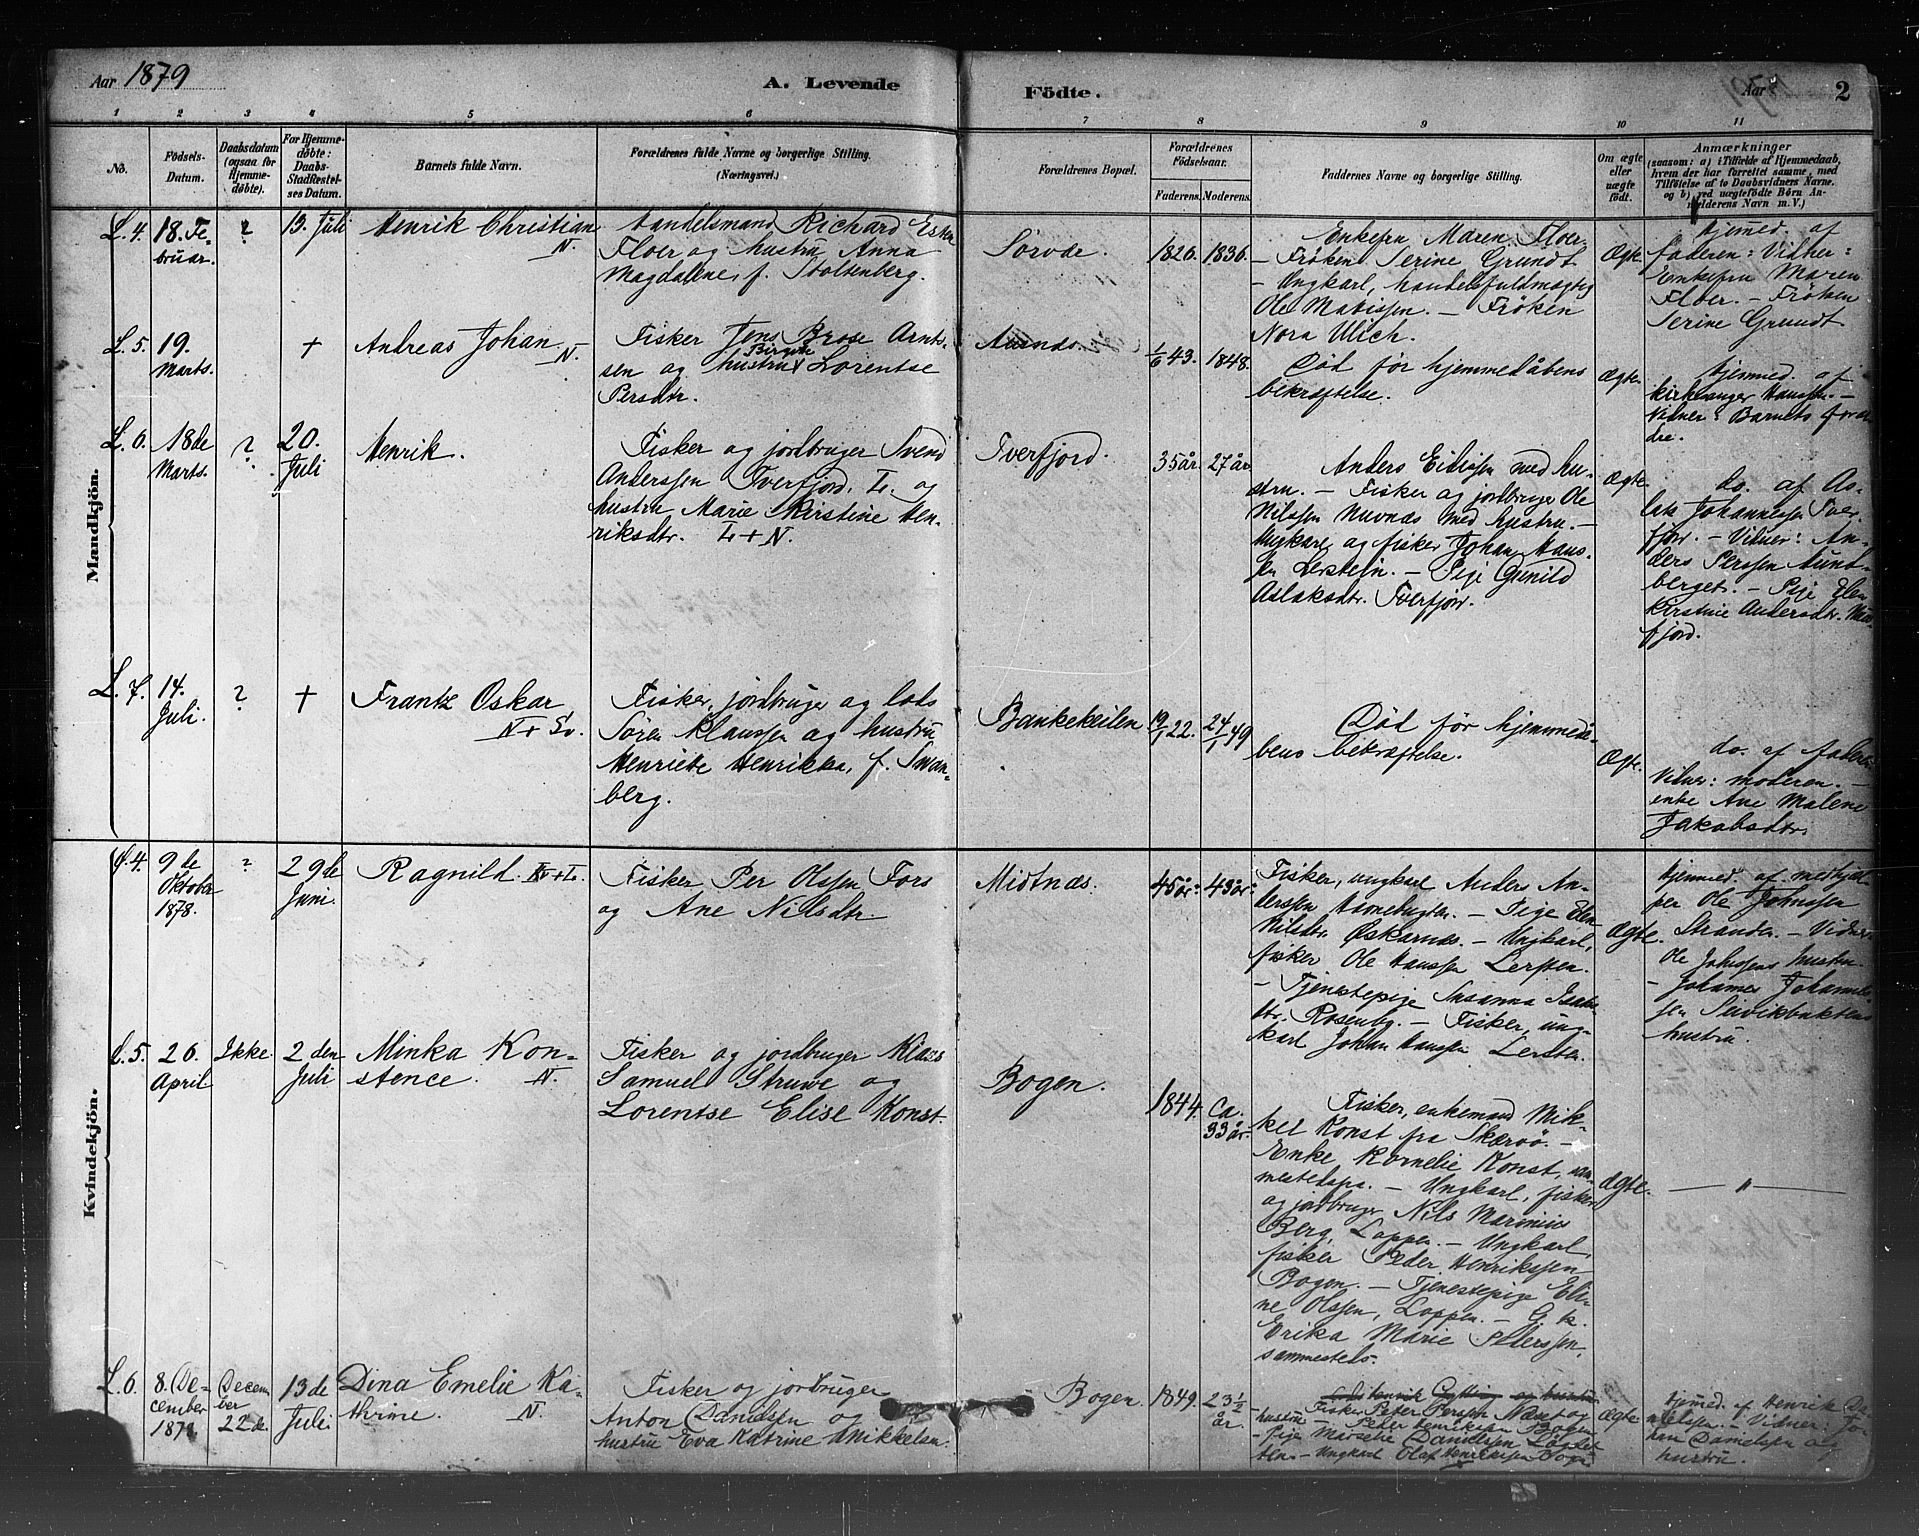 Aar 1879
A. Levende
Födte.
Aar
2
1 2 3 4 5 6 7 8 9 10 11
No.
Födsels-
Datum.
Daabsdatum
(ogsaa for
Hjemme-
döbte).
For Hjemme-
döbte:
Daabs-
Stadfæstel-
ses Datum.
Barnets fulde Navn.
Forældrenes fulde Navne og borgerlige Stilling.
(Næringsvei.)
Forældrenes Bopæl.
Forældrenes
Födselsaar.
Faderens. Moderens.
Faddernes Navne og borgerlige Stilling.
Om ægte
eller
uægte
födt.
Anmærkninger
(saasom: a) i Tilfælde af Hjemmedaab,
hvem der har forrettet samme, med
Tilföielse af to Daabsvidners Navne.
og b) ved uægtefödte Börn An-
melderens Navn m. V.)
Mandkjön.
L. 4.
18. Fe-
bruar.
?
13. Juli
Henrik Christian
N.
Handelsmand Richard Esker
Floer og hustru Anna
Magdalene, f. Stoltenberg.
Sörvær.
1826. 1836.
Enkefru Maren Floer
– Fröken Serine Grundt
– Ungkarl, handelsfuldmægtig
Ole Mathisen. – Fröken
Nora Ulich.
Ægte.
Hjemmed. af
faderen: Vidner:
Enkefru Maren
Floer. – Fröken
Serine Grundt
L. 5.
19.
Marts.
+
Andreas Johan
N.
Fisker Jens Brose Arnts-
sen og hustru Birgitte Lorentse
Persdtr.
1/6 43. 1848.
Död før hjemmedåbens
bekræftelse.
Ægte.
Hjemmed. af
kirkesanger Hanssen. –
Vidner: Barnets foræl-
dre.
L. 6.
18de
Marts.
?
20.
Juli
Henrik.
Fisker og jordbruger Svend
Anderssen Tverfjord. L. og
hustru Marie Kirstine Hen-
riksdtr. L + N.
Tverfjord.
35 år. 27 år
Anders Eidissen med hu-
stru. – Fisker og jordbruger Ole
Nilssen Nuvnæs med hustru. –
Ungkarl og fisker Johan Hans-
sen Lerstejn. – Pige Gunild
Aslaksdtr. Tverfjor.
Ægte.
do. af As-
lak Johannessen Tver-
fjor. – Vidner: An-
ders Perssen Aund-
berget. – Pije Elen
Kirstine Andersdtr.
fjord.
L. 7.
14.
Juli.
?
+
Frantz Oskar
N + Sv.
Fisker, jordbruger og lods
Sören Klaussen og hustru
Henriette Henrikka, f. Swan-
berg.
Bankekeilen
19/1 22. 24/1 49
Död før hjemmedå-
bens bekræftelse.
Ægte.
do. af faderen
Vidner: moderen. –
enke Ane Malene
Jakobsdtr.
Kvindekjön.
L. 4.
9de
Oktober
1878.
?
29de
Juni.
Ragnild. K + L.
Fisker Per Olssen Fors
og Ane Nilsdtr.
Midtnæs.
45 år: 43 år:
Fisker, ungkarl Anders An-
derssen Havnebugten. – Pige Elen
Nilsdtr. Öskarnæs. – Ungkarl,
fisker Ole Hanssen Lersten.
– Tjenestepige Susanna Isaks-
dtr. Rosenbg. – Fisker, ung-
karl Johan Hanssen Lersten.
Ægte.
Hjemmed. af medhjæl-
per Ole Johnssen
Stranden. – Vidner
Ole Johnssens hustru
– Johannes Johannes-
sen Seivikbuktens
hustru.
L. 5.
26.
April
Ikke
2den
Juli
Minka Kon-
stence. N.
Fisker og jordbruger Klaus
Samuel Struwe og
Lorentse Elise Konst.
Bogen.
1844. Ca.
33 år.
Fisker, enkemand Mik-
kel Konst fra Skærvö. –
Enke Kornelie Konst, sam-
mestedsfra. – Ungkarl, fisker
og jordbruger Nils Marinius
Berg, Loppen. – Ungkarl,
fisker Peder Henrikssen
Bogen. – Tjenestepige Eli-
ne Olssen, Loppen. – G. k.
Erika Marie Peterssen,
sammesteds.
Ægte.
— " —
L. 6.
8. De-
cember
1878.
Decem-
ber
22de.
13de
Juli
Dina Emelie Ka-
thrine. N.
Fisker og jordbruger
Anton Danielsen og
hustru Eva Katrine Mikkelsen.
Bogen.
1849. 23 1/2
år.
Fisker Peter Persen Næset og
hustru – Peter Henriksen Bogen
– Pije Marselie Danielsen Lögstet
– Ungkarl Olaf Henriksen Bogen
Ægte
Hjemmed. af Henrik Da-
nielsen. – Vidner: Jo-
han Danielsen og
hustru.